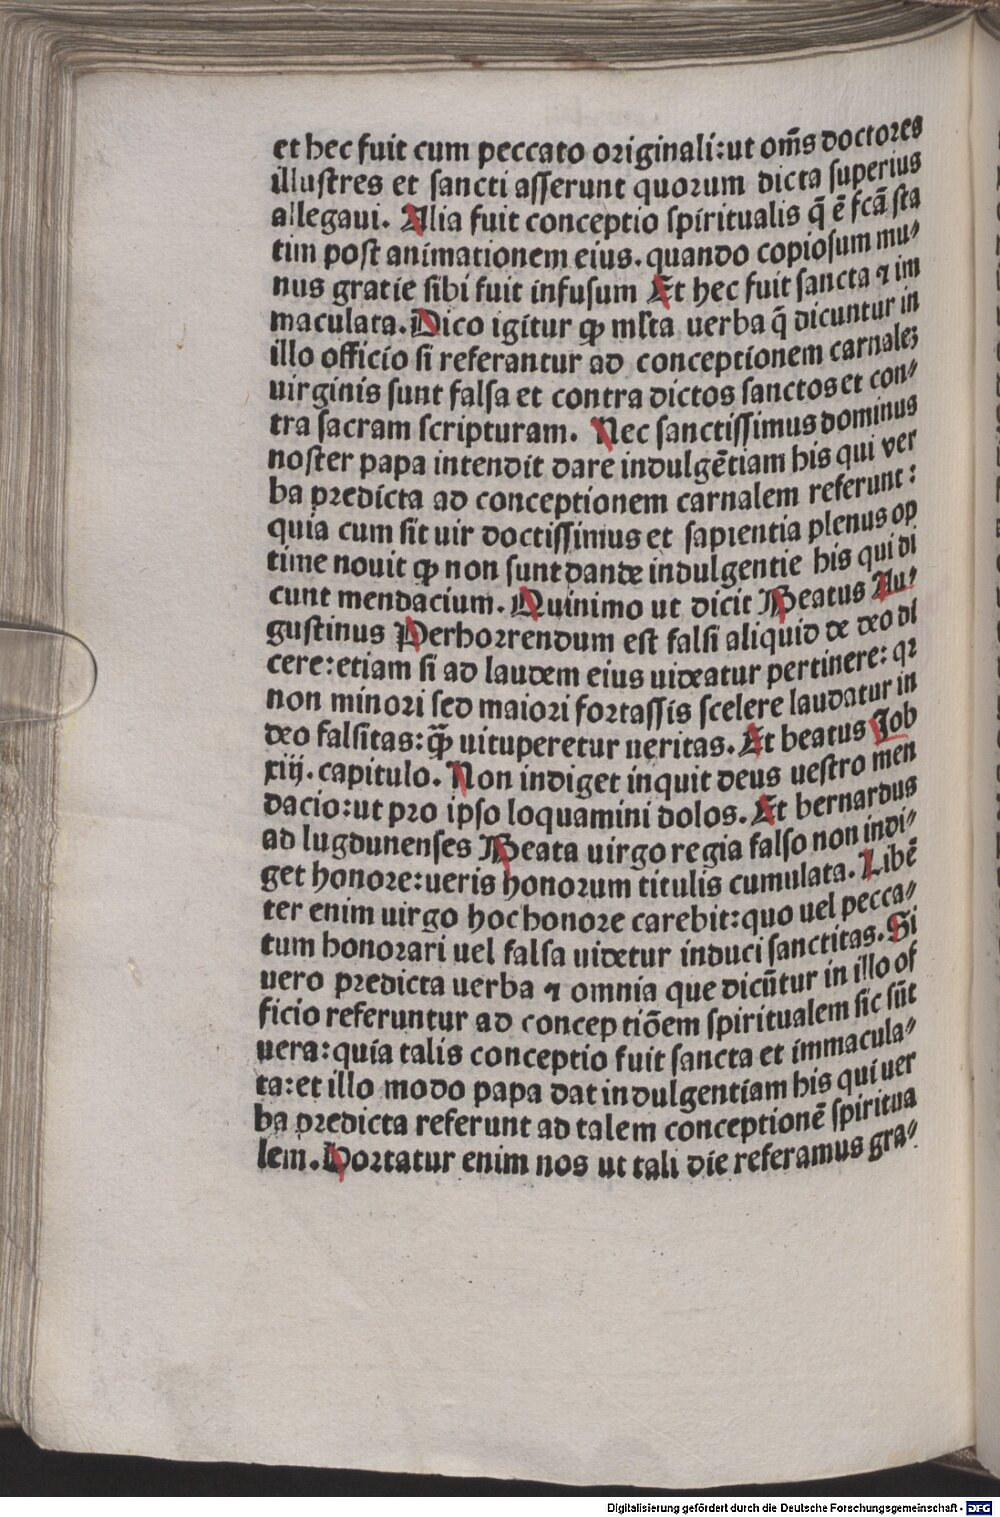 et hec fuit cum peccato originali:ut om̄s doctores
illustres et sancti asserunt quorum dicta superius
allegaui. Alia fuit conceptio spiritualis q̄ ē fcā sta
tim post animationem eius. quando copiosum mu⸗
nus gratie sibi fuit infusum Et hec fuit sancta ⁊ im
maculata. Dico igitur ꝙ mlta uerba q̄ dicuntur in
illo officio si referantur ad conceptionem carnaleꝫ
uirginis sunt falsa et contra dictos sanctos et con⸗
tra sacram scripturam. Nec sanctissimus dominus
noster papa intendit dare indulgētiam his qui ver
ba predicta ad conceptionem carnalem referunt:
quia cum sit uir doctissimus et sapientia plenus op
time nouit ꝙ non sunt dande indulgentie his qui di
cunt mendacium. Quinimo ut dicit Beatus Au⸗
gustinus Perhorrendum est falsi aliquid de deo di
cere:etiam si ad laudem eius uideatur pertinere: qꝛ
non minori sed maiori fortassis scelere laudatur in
deo falsitas:ꝙ̄ uituperetur ueritas. Et beatus Job
xiij. capitulo. Non indiget inquit deus uestro men
dacio:ut pro ipso loquamini dolos. Et bernardus
ad lugdunenses Beata uirgo regia falso non indi⸗
get honore:ueris honorum titulis cumulata. Libē
ter enim uirgo hoc honore carebit:quo uel pecca⸗
tum honorari uel falsa uidetur induci sanctitas. Si
uero predicta uerba ⁊ omnia que dicūtur in illo of
ficio referuntur ad conceptiōem spiritualem sic sūt
uera:quia talis conceptio fuit sancta et immacula⸗
ta:et illo modo papa dat indulgentiam his qui uer
ba predicta referunt ad talem conceptionē spiritua
lem. Hortatur enim nos ut tali die referamus gra⸗
Digitalisierung gefördert durch die Deutsche Forschungsgemeinschaft - DFG